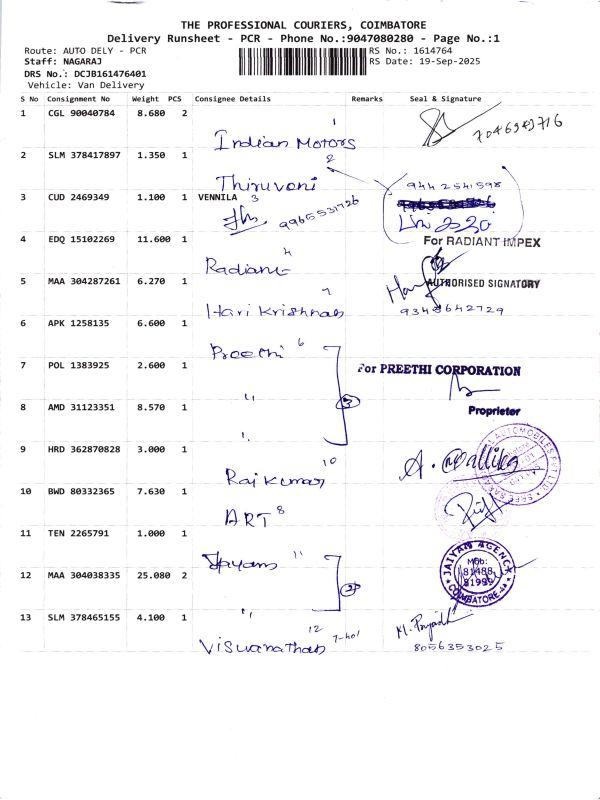 THE PROFESSIONAL COURIERS, COIMBATORE
Delivery Runsheet - PCR - Phone No.:9047080280 - Page No.:1
Route: AUTO DELY - PCR RS No.: 1614764
Staff: NAGARAJ RS Date: 19-Sep-2025
DRS No.: DCJB161476401
Vehicle: Van Delivery
S No Consignment No Weight PCS Consignee Details Remarks Seal & Signature
1 CGL 90040784 8.680 2
1
Indian Motors 7046949716
2 SLM 378417897 1.350 1
2
Thiruveni 9442541598
3 CUD 2469349 1.100 1 VENNILA 3
9965531726
4 EDQ 15102269 11.600 1 For RADIANT IMPEX
4
Radiant
5 MAA 304287261 6.270 1 AUTHORISED SIGNATORY
7
Hari Krishnan 9348642729
6 APK 1258135 6.600 1
Preethi 6
7 POL 1383925 2.600 1 For PREETHI CORPORATION
"
8 AMD 31123351 8.570 1 3 Proprietor
"
9 HRD 362870828 3.000 1
10
Raj Kumar A. Mallika
10 BWD 80332365 7.630 1
ART 8
11 TEN 2265791 1.000 1
11
JAIYAM AGENC
Mob:
81488
81999
COIMBATORE
12 MAA 304038335 25.080 2 2
"
13 SLM 378465155 4.100 1
12
Viswanathan 8056353025